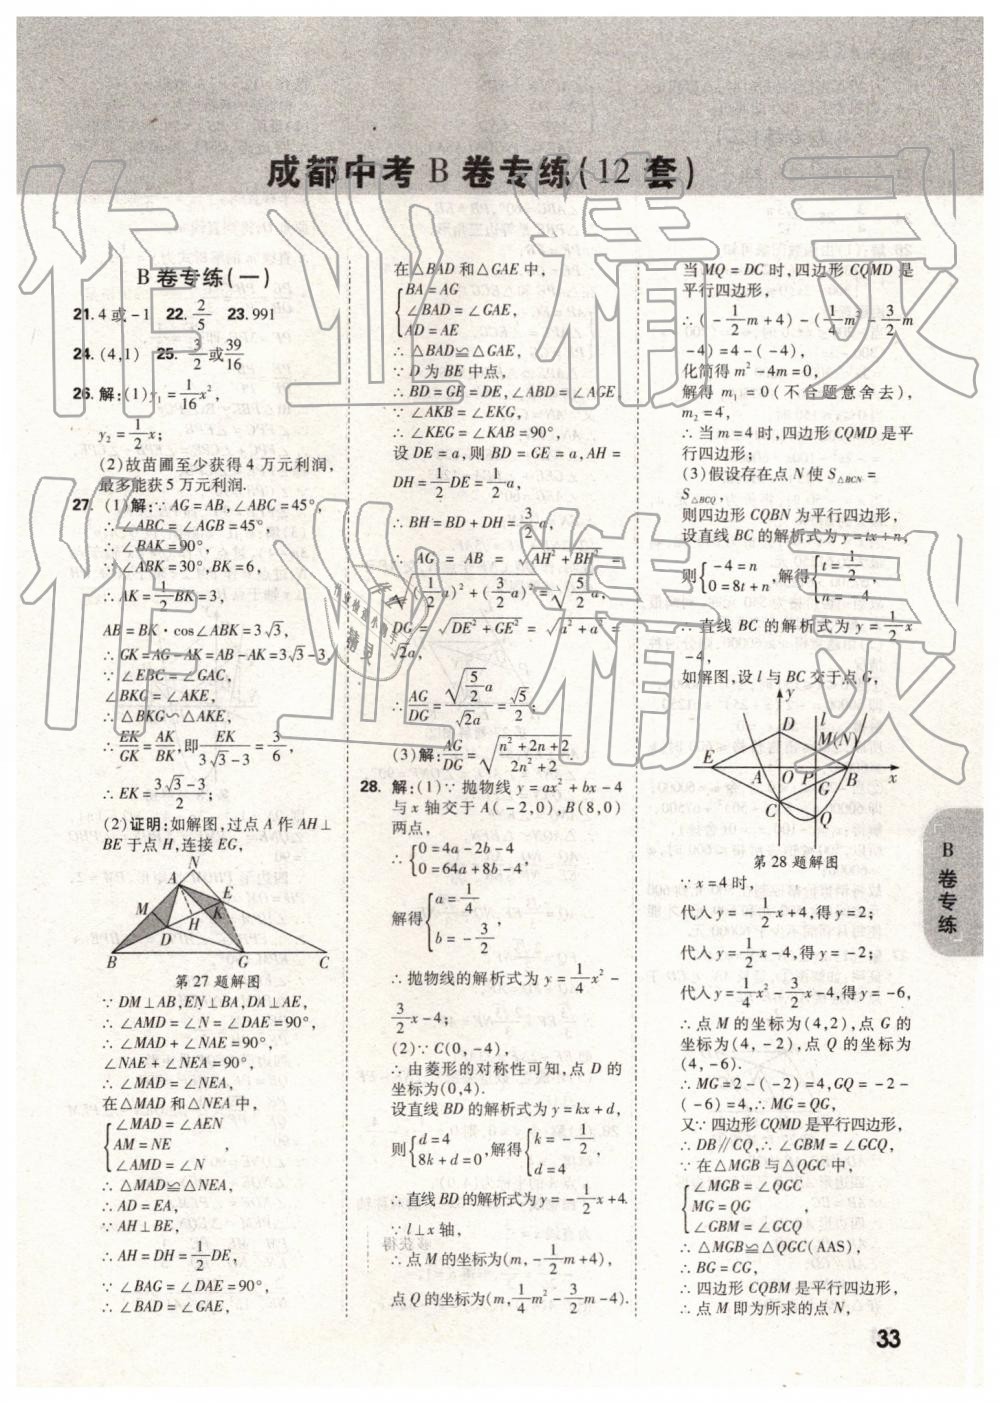 成都中考 B 卷专练(12 套)
B 卷专练(一)
21. 4 或 -1  22. 2/5  23. 991
24. (4,1)  25. 3/2或39/16
26. 解:(1)y₁=1/16x²,
y₂=1/2x;
(2)故苗圃至少获得 4 万元利润,
最多能获 5 万元利润.
27. (1)解:∵AG=AB,∠ABC=45°,
∴∠ABC=∠AGB=45°,
∴∠BAK=90°,
∵∠ABK=30°,BK=6,
∴AK=1/2BK=3,
AB=BK·cos∠ABK=3√3,
∴GK=AG-AK=AB-AK=3√3-3,
∵∠EBC=∠GAC,
∠BKG=∠AKE,
∴△BKG∽△AKE,
∴EK/GK=AK/BK,即EK/(3√3-3)=3/6,
∴EK=(3√3-3)/2;
(2)证明:如解图,过点 A 作 AH⊥
BE 于点 H,连接 EG,
N
A
E
M
K
H
D
B
G
C
第 27 题解图
∵DM⊥AB,EN⊥BA,DA⊥AE,
∴∠AMD=∠N=∠DAE=90°,
∴∠MAD+∠NAE=90°,
∠NAE+∠NEA=90°,
∴∠MAD=∠NEA,
在△MAD 和△NEA 中,
∠MAD=∠AEN
AM=NE ,
∠AMD=∠N
∴△MAD≌△NEA,
∴AD=EA,
∵AH⊥BE,
∴AH=DH=1/2DE,
∵∠BAG=∠DAE=90°,
∴∠BAD=∠GAE,
在△BAD 和△GAE 中,
BA=AG
∠BAD=∠GAE,
AD=AE
∴△BAD≌△GAE,
∵D 为 BE 中点,
∴BD=GE=DE,∠ABD=∠AGE,
∵∠AKB=∠EKG,
∴∠KEG=∠KAB=90°,
设 DE=a,则 BD=GE=a,AH=
DH=1/2DE=1/2a,
∴BH=BD+DH=3/2a,
∴AG=AB=√(AH²+BH²)=
√((1/2a)²+(3/2a)²)=√(5/2)a,
DG=√(DE²+GE²)=√(a²+a²)=
√2a,
∴AG/DG=√(5/2)a/√2a=√5/2;
(3)解:AG/DG=√((n²+2n+2)/(2n²+2)).
28. 解:(1)∵抛物线 y=ax²+bx-4
与 x 轴交于 A(-2,0),B(8,0)
两点,
∴{0=4a-2b-4
0=64a+8b-4,
解得{a=1/4
b=-3/2,
∴抛物线的解析式为 y=1/4x²-
3/2x-4;
(2)∵C(0,-4),
∴由菱形的对称性可知,点 D 的
坐标为(0,4).
设直线 BD 的解析式为 y=kx+d,
则{d=4
8k+d=0,解得{k=-1/2,
d=4
∴直线 BD 的解析式为 y=-1/2x+4.
∵l⊥x 轴,
∴点 M 的坐标为(m,-1/2m+4),
点 Q 的坐标为(m,1/4m²-3/2m-4).
当 MQ=DC 时,四边形 CQMD 是
平行四边形,
∴(-1/2m+4)-(1/4m²-3/2m
-4)=4-(-4),
化简得 m²-4m=0,
解得 m₁=0(不合题意舍去),
m₂=4,
∴当 m=4 时,四边形 CQMD 是平
行四边形;
(3)假设存在点 N 使 S△BCN=
S△BCQ,
则四边形 CQBN 为平行四边形,
设直线 BC 的解析式为 y=tx+n,
则{-4=n
0=8t+n,解得{t=1/2,
n=-4
∴直线 BC 的解析式为 y=1/2x
-4,
如解图,设 l 与 BC 交于点 G,
y
D
l
M(N)
E
A
O
P
B
x
G
C
Q
第 28 题解图
∵x=4 时,
代入 y=-1/2x+4,得 y=2;
代入 y=1/2x-4,得 y=-2;
代入 y=1/4x²-3/2x-4,得 y=-6,
∴点 M 的坐标为(4,2),点 G 的
坐标为(4,-2),点 Q 的坐标为
(4,-6).
∴MG=2-(-2)=4,GQ=-2-
(-6)=4,∴MG=QG,
又∵四边形 CQMD 是平行四边形,
∴DB∥CQ,∴∠GBM=∠GCQ,
∵在△MGB 与△QGC 中,
∠MGB=∠QGC
MG=QG ,
∠GBM=∠GCQ
∴△MGB≌△QGC(AAS),
∴BG=CG,
∴四边形 CQBM 是平行四边形,
∴点 M 即为所求的点 N,
B 卷专练
33
作业精灵
作业精灵